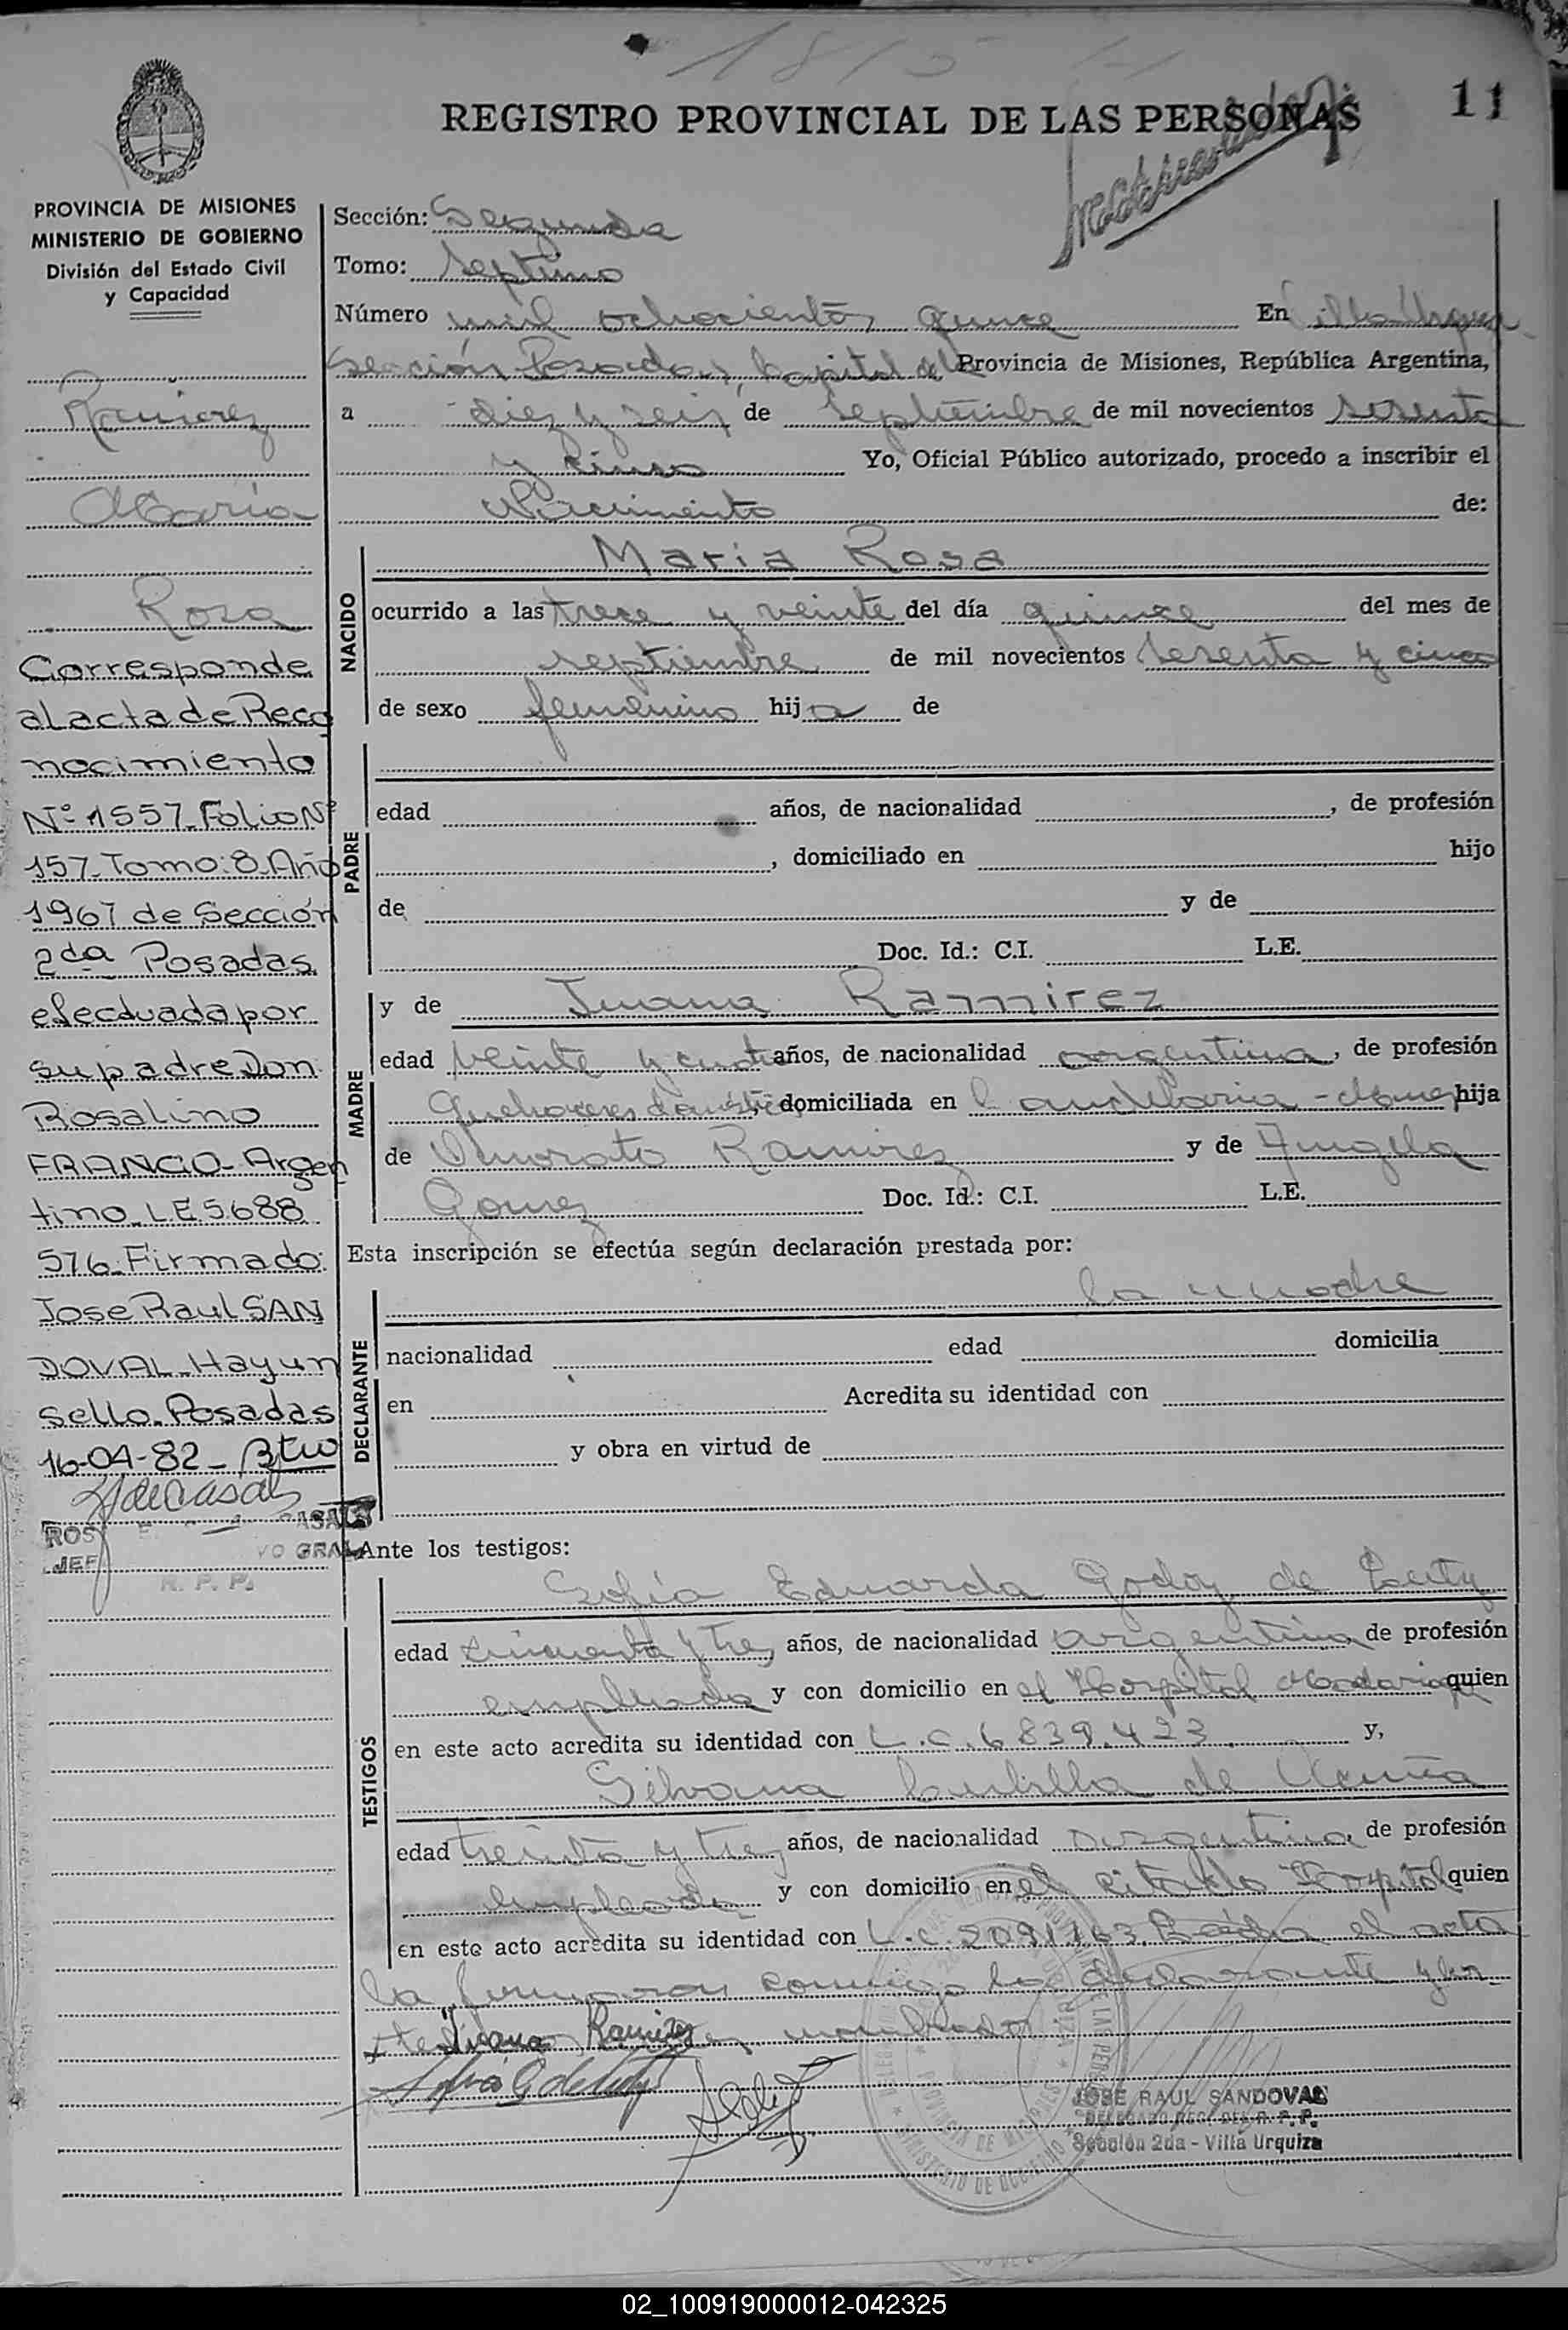 1815
REGISTRO PROVINCIAL DE LAS PERSONAS
11
PROVINCIA DE MISIONES
MINISTERIO DE GOBIERNO
División del Estado Civil
y Capacidad
Ramirez
Maria
Rosa
Corresponde
al acta de Reco
nocimiento
Nº 1557. Folio Nº
157. Tomo: 8. Año
1967 de Sección
2da Posadas.
efectuada por
su padre Don
Rosalino
FRANCO. Argen
tino. L.E 5688
576. Firmado:
Jose Raul SAN
DOVAL. Hay un
Sello. Posadas
16-04-82
R. P. P.
Sección: Segunda
Tomo: Septimo
Número mil ochocientos quince En Villa Urqui
Sección Posadas, Capital de la Provincia de Misiones, República Argentina,
a diez y seis de septiembre de mil novecientos sesenta
y cinco Yo, Oficial Público autorizado, procedo a inscribir el
Nacimiento de:
NACIDO
Maria Rosa
ocurrido a las trece y veinte del día quince del mes de
septiembre de mil novecientos sesenta y cinco
de sexo femenino hija de
PADRE
edad años, de nacionalidad , de profesión
, domiciliado en hijo
de y de
Doc. Id.: C.I. L.E.
MADRE
y de Juana Ramirez
edad veinte y cuatro años, de nacionalidad argentina, de profesión
Quehaceres domésticos, domiciliada en Candelaria - Mnes hija
de Onorato Ramirez y de Angela
Gomez Doc. Id.: C.I. L.E.
Esta inscripción se efectúa según declaración prestada por:
la madre
DECLARANTE
nacionalidad edad domicilia
en Acredita su identidad con
y obra en virtud de
Ante los testigos:
TESTIGOS
Sofia Eduarda Godoy de
edad cincuenta y tres años, de nacionalidad argentina de profesión
empleada y con domicilio en el Hospital Madariaga quien
en este acto acredita su identidad con L.C. 6839.423. y,
Silvana Cubilla de Acuña
edad treinta y tres años, de nacionalidad argentina de profesión
empleada y con domicilio en el citado Hospital quien
en este acto acredita su identidad con L.C. 2091763. Leída el acta
la firmaron conmigo la declarante y los
testigos nombrados
Juana Ramirez
JOSE RAUL SANDOVAL
DELEGADO REG. DEL R. P. P.
Sección 2da - Villa Urquiza
02_100919000012-042325